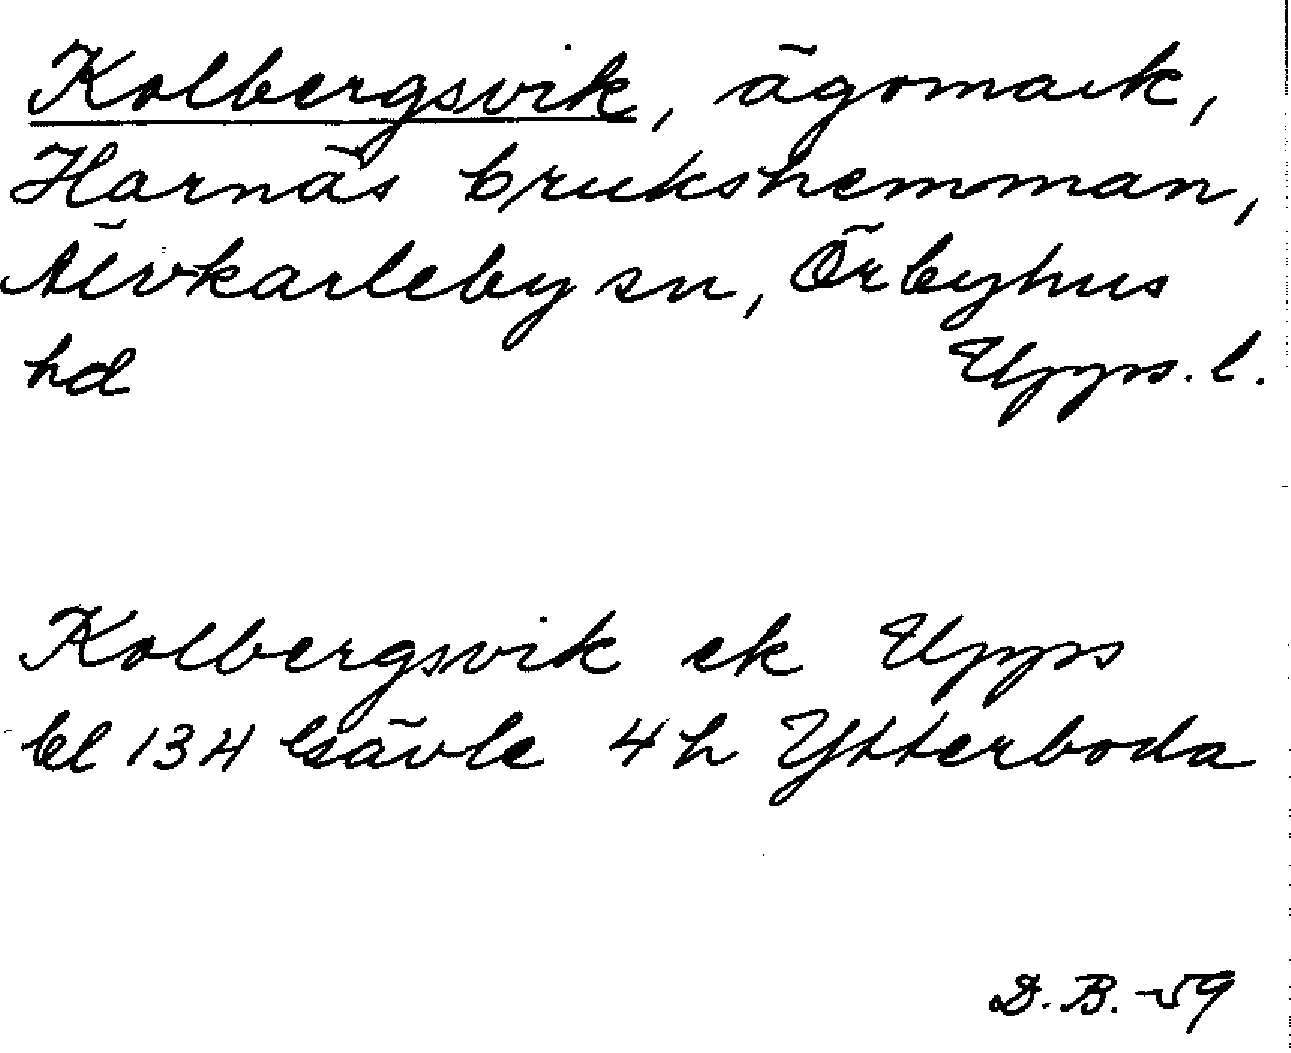 Kolbergsvik, ägomark,
Harnäs brukshemman,
Älvkarleby sn, Örbyhus
hd Upps. l.
Kolbergsvik ek Upps
bl 13H Gävle 4h Ytterboda
D. B. -59